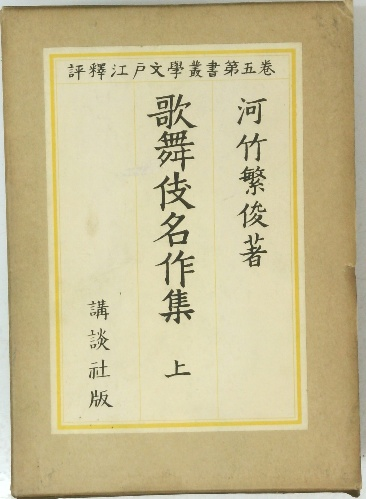 評釋江戸文學叢書第五卷
河竹繁俊著
歌舞伎名作集 上
講談社版